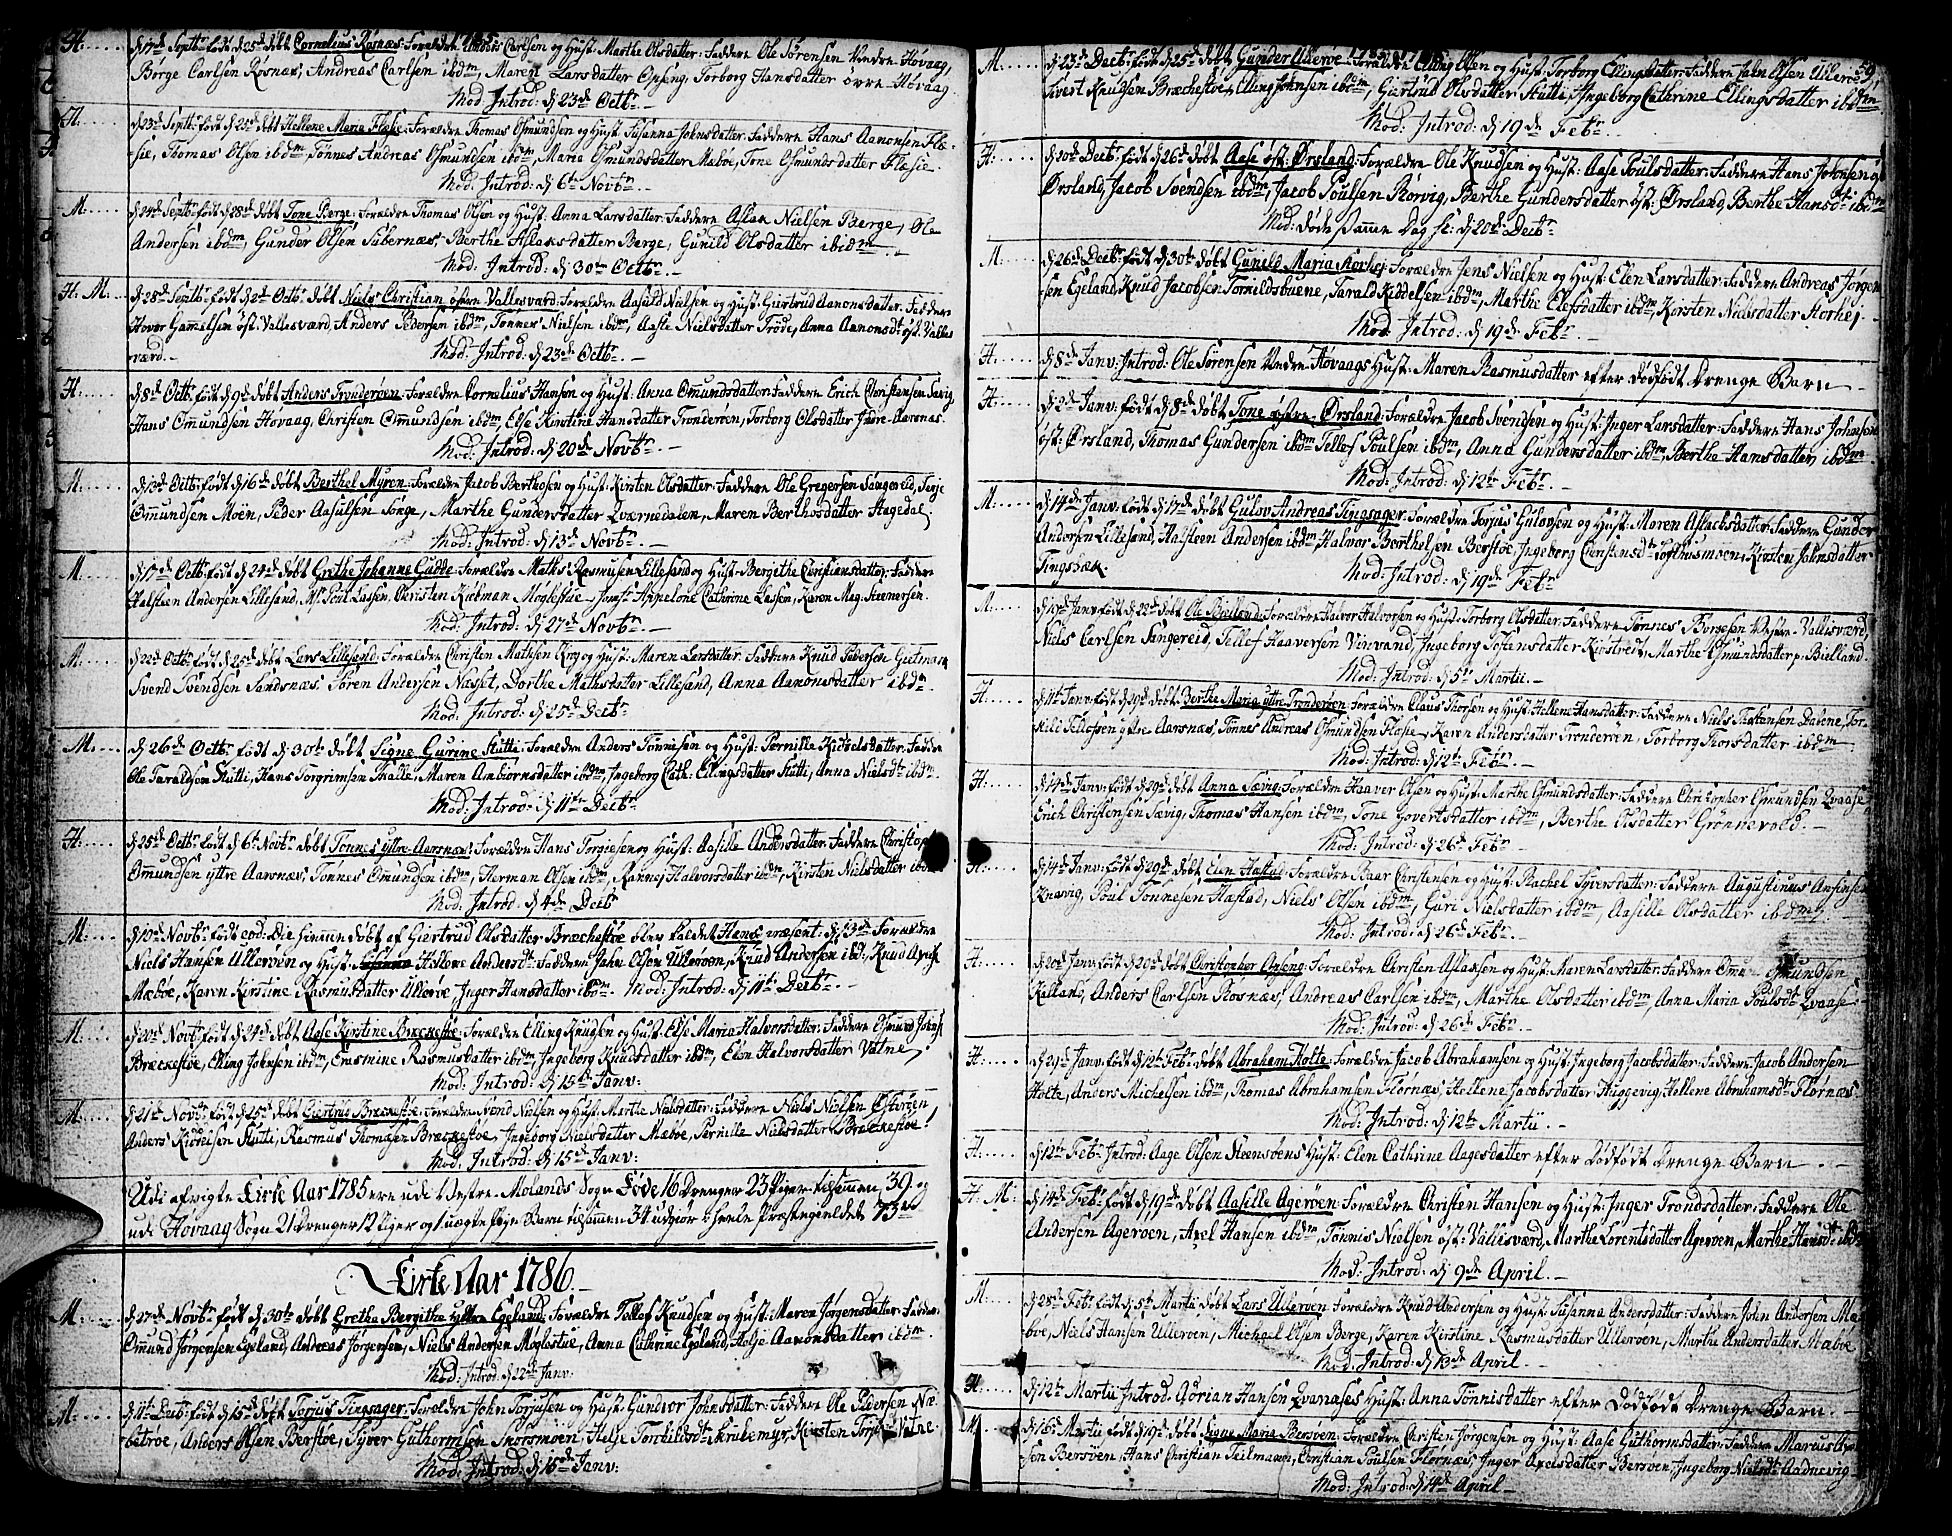 1785
H. d 17de Septbr født d 25de døbt Cornelius Rosnæs: Forældre Anders Carlsen og Hust: Marthe Olsdatter: Faddere Ole Sørensen Vendre Hovaag,
Børge Carlsen Røsnæs, Andreas Carlsen ibdm, Maren Larsdatter Opseng, Torborg Hansdatter øvre Hovaag
Mod: Introd: d 23de Octbr.
H. d 23de Septbr født d 25de døbt Hellene Maria Flæsie: Forældre Thomas Osmundsen og Hust: Susanna Johnsdatter: Faddere Hans Aanonsen Flæ-
sie, Thomas Olsen ibdm, Tønnes Andreas Osmundsen ibdm, Maria Osmundsdatter Mabøe, Tone Osmundsdatter Flæsie.
Mod: Introd: d 6te Novbr.
M. d 24de Septbr født d 28de døbt Tone Berge: Forældre Thomas Olsen og Hust: Anna Larsdatter: Faddere Aslak Nielsen Berge, Ole
Andersen ibdm, Gunder Olsen Subernæs, Berthe Aslaksdatter Berge, Gunild Olsdatter ibdm.
Mod: Introd: d 30te Octbr.
H. M. d 28de Septbr født d 2de Octbr døbt Niels Christian østre Vallesværd: Forældre Aasuld Nielsen og Hust: Giertrud Aanonsdatter: Faddere
Hover Gamelsen øst: Vallesværd, Anders Pedersen ibdm, Tønnes Nielsen ibdm, Aasle Nielsdatter Trøde, Anna Aanonsdt øst: Valles
værd.
Mod: Introd: d 23de Octbr.
H. d 8de Octbr født d 9de døbt Anders Tronderøen: Forældre Cornelius Hansen og Hust: Anna Omundsdatter: Faddere Erich Christensen Sævig,
Hans Omundsen Hovaag, Christen Omundsen ibdm, Else Kirstine Hansdatter Tronderøen, Torborg Olsdatter Jndre Aarsnæs.
Mod: Introd: d 20de Novbr.
M. d 13de Octbr født d 16de døbt Berthel Myren: Forældre Jacob Berthosen og Hust: Kirsten Olsdatter: Faddere Ole Gregersen Sangereid, Tarje
Omundsen Moen, Peder Aasulsen Songe, Marthe Gundersdatter Qværnedalen, Maren Berthosdatter Hagedal.
Mod: Introd: d 13de Novbr.
M. d 17de Octbr født d 24de døbt Grethe Johanne Gudde: Forældre Mathis Rasmusen Lillesand og Hust: Bergithe Christiansdatter: Faddere
Halsteen Andersen Lillesand, Mr Poul Lassen, Christen Rickman Moglestue, Jomfr Appelone Cathrine Lassen, Karen Mag: Steenersen.
Mod: Introd: d 27de Novbr.
M. d 22de Octbr født d 25de døbt Lars Lillesand: Forældre Christen Mathisen Krog og Hust: Maren Larsdatter: Faddere Knud Pedersen Gutman
Svend Svendsen Sandsnæs, Søren Andersen Næsset, Dorthe Mathisdatter Lillesand, Anna Aanonsdatter ibdm.
Mod: Introd: d 25de Decbr
M. d 26de Octbr født d 30te døbt Signe Gurine Stutti: Forældre Anders Tønnisen og Hust: Pernilla Kittelsdatter: Fadde
Ole Taraldsøn Stutti, Hans Torgrimsen Skalle, Maren Ambiørnsdatter ibdm, Ingeborg Cath: Ellingsdatter Stutti, Anna Nielsdt ibdm.
Mod: Introd: d 11te Decbr.
H. d 25de Octbr født d 6te Novbr døbt Tønnes yttre Aarsnæs: Forældre Hans Torgiesen og Hust: Aasille Andersdatter: Faddere Christoph
Omundsen yttre Aarsnæs, Tønnes Omundsen ibdm, Herman Olsen ibdm, Rannej Halvorsdatter ibdm, Kirsten Nielsdatter ibdm
Mod: Introd: d 4de Decbr
M. d 10de Novbr født eod: Die hiemme døbt af Giertrud Olsdatter Bræckestøe blev kaldet Hans præsent: d 13de Forældre
Niels Hansen Ullerøen og Hust: Hellene Andersdt: Faddere Jahn Olsen Ullerøen, Knud Andersen ibd: Knud
Mæbøe, Karen Kirstine Rasmusdatter Ullerøe, Inger Hansdatter ibdm. Mod: Introd: d 11te Decbr.
M. d 20de Novbr født d 24de døbt Aase Kirstine Bræckestøe: Forældre Elling Knudsen og Hust: Else Maria Halvorsdatter: Faddere Osmund Johns
Bræckestøe, Elling Johnsen ibdm, Erasmine Rasmusdatter ibdm, Ingeborg Knudsdatter ibdm, Elen Halvorsdatter Vatne,
Mod: Introd: d 15de Janv:
M. d 21de Novbr født d 25de døbt Giertrud Bræckestøe: Forældre Svend Nielsen og Hust: Marthe Nielsdatter: Faddere Niels Nielsen Osterøen,
Anders Kittelsen Stutti, Rasmus Thomasen Bræckestøe, Ingeborg Nielsdatter Mæbøe, Pernille Nielsdatter Bræckestøe.
Mod: Introd: d 15de Janv:
Udi afvigte Kirke Aar 1785 ere udi Vestre-Molands Sogn Føde 16 Drenger 23 Piger tilsammen 39 og
udi Hovaag Sogn 21 drenger 12 Piger og 1 uægte Pige Barn tilsammen 34 udgiør i heele Præstegieldet 73de
Kirke Aar 1786.
M. d 27de Novbr født d 30te døbt Grethe Bergithe Egeland: Forældre Tellef Knudsen og Hust: Maren Jørgensdatter: Faddere
Omund Jørgensen Egeland, Andreas Jørgensen, Niels Andersen Moglestue, Anna Cathrine Egeland, Helje Aanonsdatter ibdm.
Mod: Introd: d 22de Janv:
M. d 11te Decbr født d 15de døbt Torjus Tingsager: Forældre John Torjusen og Hust: Gundvor Johnsdatter: Faddere Ole Pedersen
Anders Olsen Berstøe, Syver Guthormsen Skorsmoen, Helje Torkildsdt Skrubemyr, Kirsten Vatne
Mod: Introd: d 15de Janv:
1785. 1786. 59.
M. d 23de Decbr født d 25de døbt Gunder Ullerøe: Forældre Elling Olsen og Hust: Torborg Ellingsdatter: Faddere John Olsen Ullerøe,
Sivert Knudsen Bræchestøe, Elling Johnsen ibdm, Giertrud Olsdatter Stutti, Ingeborg Cathrine Ellingsdatter ibdm
Mod: Introd: d 19de Febr.
H. d 20de Decbr født d 26de døbt Aase øst: Ørsland: Forældre Ole Knudsen og Hust: Aase Poulsdatter: Faddere Hans Johnsen øst
Ørsland, Jacob Svendsen ibdm, Jacob Poulsen Rørvig, Berthe Gundersdatter øst: Ørsland, Berthe Hansdt: ibdm
Mod: døde samme Dag sc: d 20de Decbr
M. d 26de Decbr født d 30te døbt Gunild Maria Storhej: Forældre Jens Nielsen og Hust: Elen Larsdatter: Faddere Andreas Jørgen
sen Egeland, Knud Jacobsen Tornildsbuene, Tarald Kiddelsen ibdm, Marthe Elefsdatter ibdm, Kirsten Nielsdatter Storhej.
Mod: Introd: d 19de Febr.
H. d 8de Janv: Introd: Ole Sørensen Vendre Hovaags Hust: Maren Rasmusdatter efter Dødfødt Drenge Barn
H. d 2de Janv: født d 8de døbt Tone østre Ørsland: Forældre Jacob Svendsen og Hust: Inger Larsdatter: Faddere Hans Johnsen
øst: Ørsland, Thomas Gundersen ibdm, Tellef Poulsen ibdm, Anna Gundersdatter ibdm, Berthe Hansdatter ibdm.
Mod: Introd: d 12te Febr.
M. d 14de Janv: født d 17de døbt Gulov Andreas Tingsager: Forældre Torjus Gulovsen og Hust: Maren Aslachsdatter: Faddere Gunder
Andersen Lillesand, Halsteen Andersen ibdm, Halvor Berthelsen Berstøe, Ingeborg Christensdt Tofthusmoen, Kirsten Johnsdatter
Tingsbæk.
Mod: Introd: d 19de Febr
M. d 19de Janv: født d 22de døbt Ole Bielland: Forældre Halvor Halvorsen og Hust: Torborg Olsdatter: Faddere Tønnes Børgesen Vestre Vallesværd,
Niels Carlsen Sangereid, Tellef Haaversen Vinvand, Ingeborg Tostensdatter Kirstredt, Marthe Osmundsdatter Bielland.
Mod: Introd: d 5te Martii.
H. d 11te Janv: født d 19de døbt Berthe Maria yttre Tronderøen: Forældre Claus Thorsen og Hust: Hellene Hansdatter: Faddere Niels Tostensen Dalene, Tor-
kild Tellofsen yttre Aarsnæs, Tønnes Andreas Osmundsen Flæsie, Karen Andersdatter Tronderøen, Torborg Thorsdatter ibdm
Mod: Introd: d 12te Febr.
H. d 14de Janv: født d 29de døbt Anna Sævig: Forældre Haaver Olsen og Hust: Marthe Osmundsdatter: Faddere Christopher Osmundsen Qvaase
Erich Christensen Sævig, Thomas Hansen ibdm, Tone Govertsdatter ibdm, Berthe Olsdatter Grønnevold.
Mod: Introd: d 26de Febr.
H. d 14de Janv: født d 29de døbt Elen Hæstad: Forældre Baar Christensen og Hust: Rachel Syversdatter: Faddere Augustinus Ansinsen
Knavig, Poul Tønnesen Hæstad, Niels Olsen ibdm, Guri Nielsdatter ibdm, Aasille Olsdatter ibdm.
Mod: Introd: d 26de Febr.
H. d 20de Janv: født d 29de døbt Christopher Opseng: Forældre Christen Aslaksen og Hust: Maren Larsdatter: Faddere Osmundsen
Kalland, Anders Carlsen Rosnæs, Andreas Carlsen ibdm, Marthe Olsdatter ibdm, Anna Maria Poulsdt Qvaase
Mod: Introd: d 26de Febr.
H. d 21de Janv: født d 12te Febr døbt Abraham Holte: Forældre Jacob Abrahamsen og Hust: Ingeborg Jacobsdatter: Faddere Jacob Andersen
Holte, Anders Michelsen ibdm, Thomas Abrahamsen Flørnæs, Hellene Jacobsdatter Huggevig, Hellene Abrahamsdt Flørnæs
Mod: Introd: d 12te Martii.
H. d 12te Febr: Introd: Aage Olsen Steensøens Hust: Elen Cathrine Aagesdatter efter Dødfødt Drenge Barn.
H. M. d 14de Febr: født d 19de døbt Aasille Agerøen: Forældre Christen Hansen og Hust: Inger Trondsdatter: Faddere Ole
Andersen Agerøen, Axel Hansen ibdm, Tønnis Nielsen øst: Vallesværd, Marthe Lorentsdatter Agerøen, Marthe Hansdt: ibdm
Mod: Introd: d 9de April.
M. d 28de Febr: født d 5te Martii døbt Lars Ullerøen: Forældre Knud Andersen og Hust: Susanna Andersdatter: Faddere John Andersen Mæ-
bøe, Niels Hansen Ullerøen, Michael Olsen Berge, Karen Kirstine Rasmusdatter Ullerøen, Marthe Andersdatter Mæbøe
Mod: Introd: d 13de April.
H. d 12te Martii Introd: Adrian Hansen Qvanæses Hust: Anna Tønnisdatter efter Dødfødt Drenge Barn.
M. d 16de Martii født d 19de døbt Signe Maria Bersøen: Forældre Christen Jørgensen og Hust: Aase Guthormsdatter: Faddere Marcus
sen Bersøen, Hans Christian Teilmann, Christian Poulsen Flørnæs, Inger Axelsdatter Bersøen, Ingeborg Nielsdt: Aadnevig
Mod: Introd: d 14de April